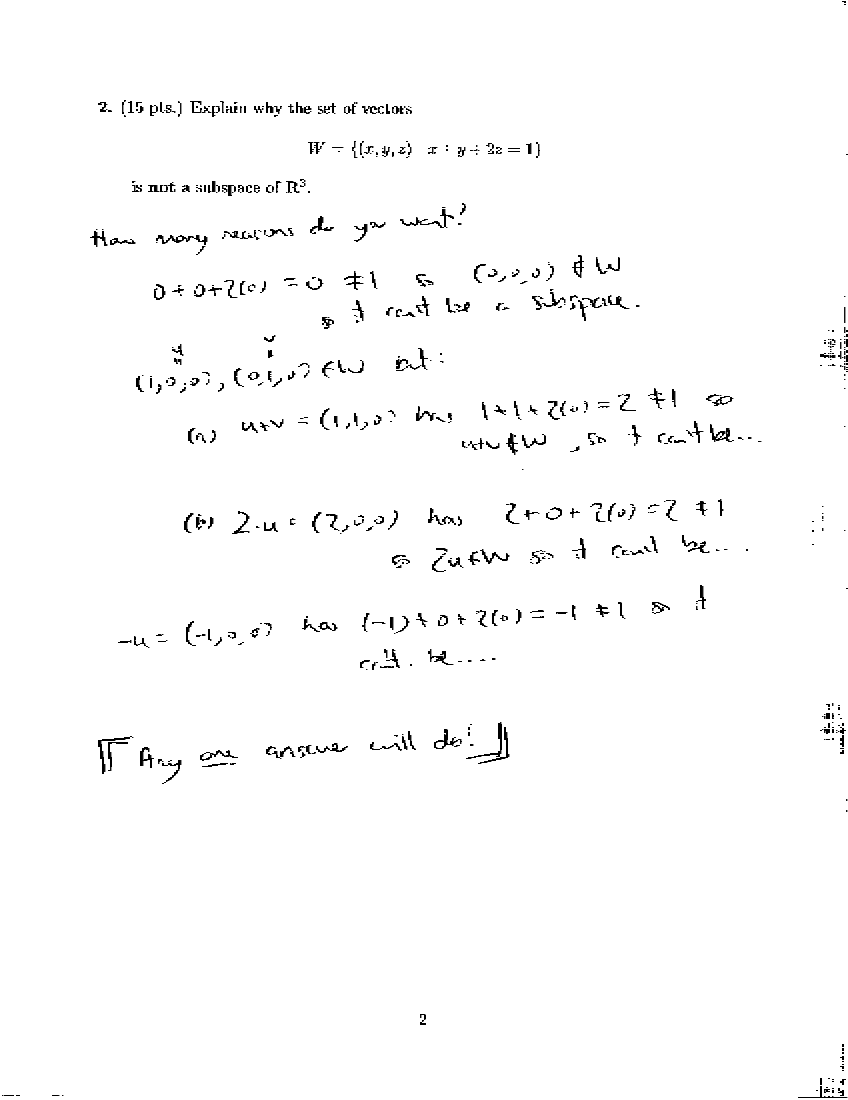 2. (15 pts.) Explain why the set of vectors
W = {(x, y, z) x + y + 2z = 1}
is not a subspace of R³.
How many reasons do you want?
0+0+2(0) = 0 ≠ 1 so (0,0,0) ∉ W
so it can't be a subspace.
u v
(1,0,0), (0,1,0) ∈ W but:
(a) u+v = (1,1,0) has 1+1+2(0) = 2 ≠ 1 so
u+v ∉ W, so it can't be...
(b) 2·u = (2,0,0) has 2+0+2(0) = 2 ≠ 1
so 2u ∉ W so it can't be....
-u = (-1,0,0) has (-1)+0+2(0) = -1 ≠ 1 so it
can't be.....
[[ Any one answer will do! ]]
2